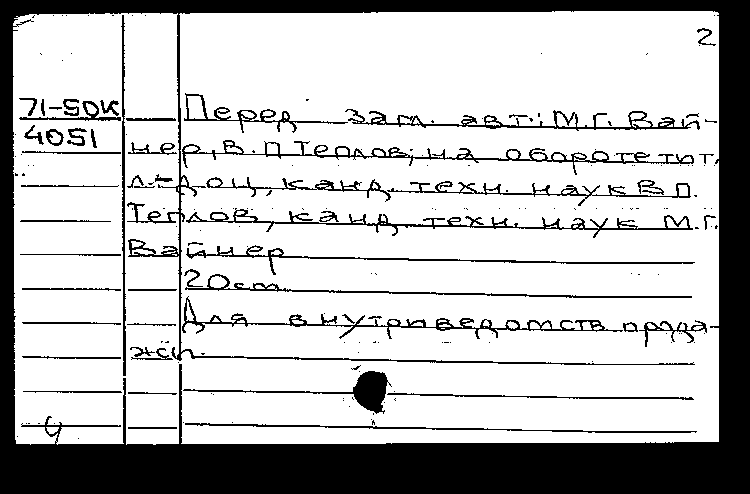 2
71-50К
4051
Перед загл. авт.: М.Г. Вай-
нер, В.П Теплов; на обороте тит.
л.-доц., канд. техн. наук В П.
Теплов, канд. техн. наук М.Г.
Вайнер
20см
Для внутриведомств прода-
жи.